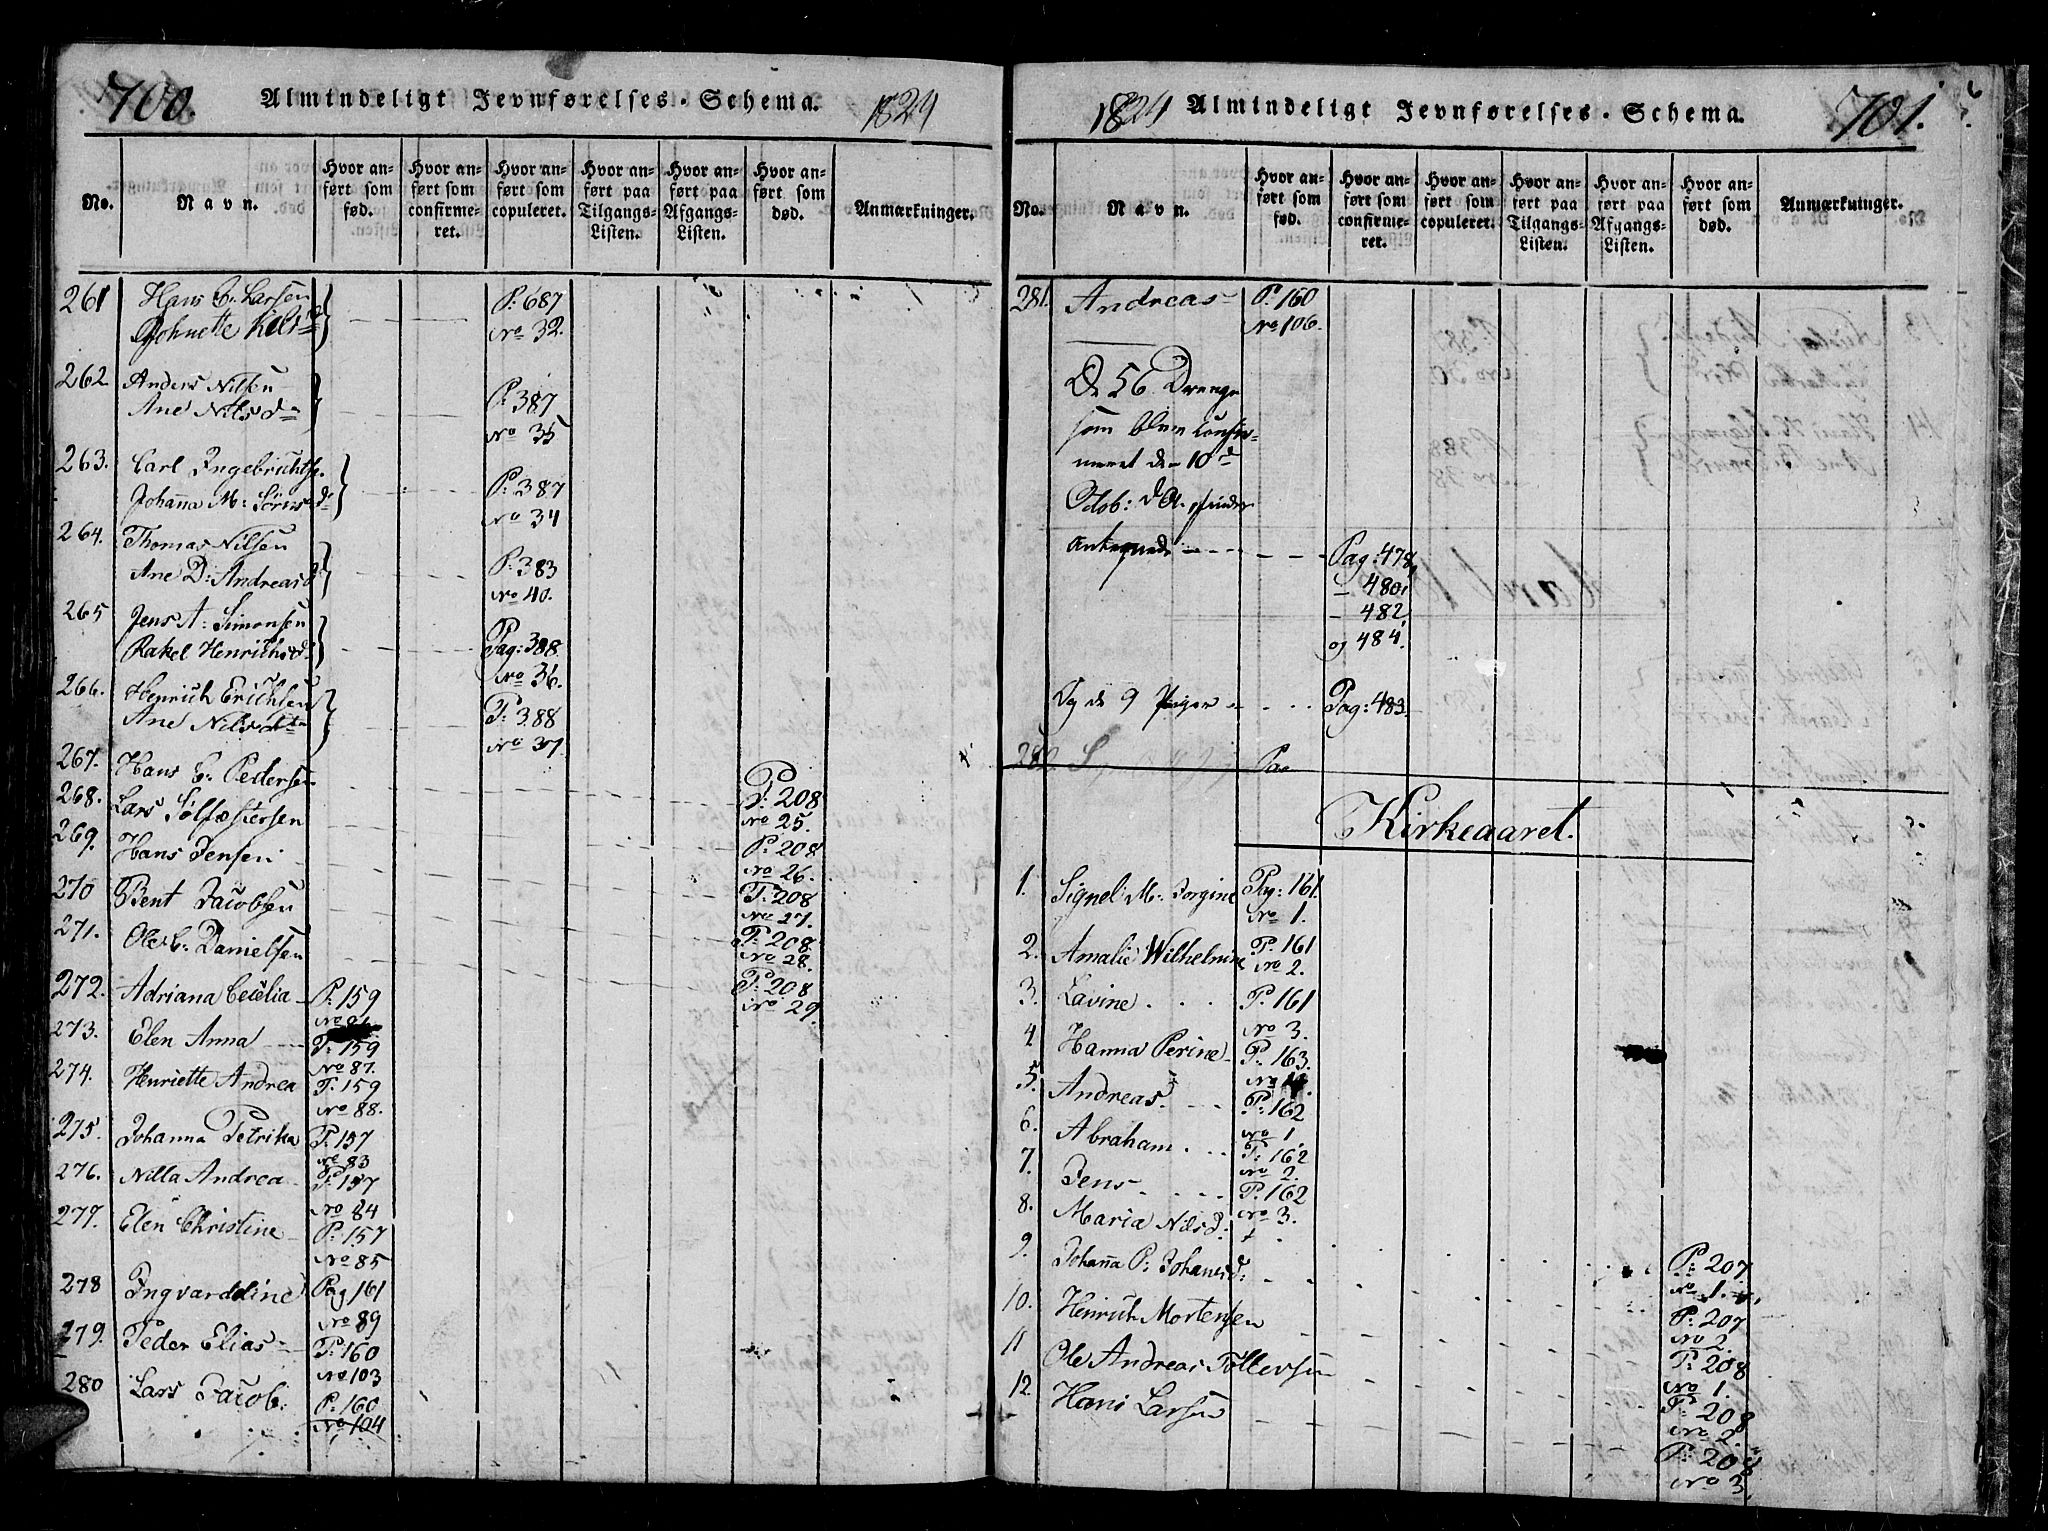 700. Almindeligt Jevnførelses-Schema. 1824
No.
Navn.
Hvor anført som fød.
Hvor anført som confirmeret.
Hvor anført som copuleret.
Hvor anført paa Tilgangs-Listen.
Hvor anført paa Afgangs-Listen.
Hvor anført som død.
Anmærkninger.
261 Hans C. Larsen
P: 687
No 32.
262 Anders Nilsen
Ane Nilsd
P: 387
No 35
263. Carl Ingebrichts.
Johanna M: Sörensd
P: 387
No 34
264. Thomas Nilsen
Ane D: Andreasd
P: 383
No 40.
265 Jens A: Simonsen
Rakel Henrichsd
Pag: 388.
No 36.
266. Henrich Erichsen
Ane Nilsd
P: 388
No 37.
267. Hans C. Pedersen
P: 208
No 25.
268. Lars Sölfæstersen
P: 208
No 26.
269. Hans Jensen
P: 208
No 27.
270 Bent Jacobsen
P: 208
No 28.
271. Ole C: Danielsen
P: 208
No 29.
272. Adriana Cecelia P: 159
273. Elen Anna P: 159
No 87.
274. Henriette Andrea P: 159
No 88.
275. Johanna Petrika P: 157
No 83
276. Nilla Andrea P: 157
No 84
277. Elen Christine P: 157
No 85
278 Ingvarddine Pag 161
No 89
279. Peder Elias P: 160
No 103
280 Lars Jacob. P: 160
No 104
1824 Almindeligt Jevnførelses-Schema. 701.
No.
Navn.
Hvor anført som fød.
Hvor anført som confirmeret.
Hvor anført som copuleret.
Hvor anført paa Tilgangs-Listen.
Hvor anført paa Afgangs-Listen.
Hvor anført som død.
Anmærkninger.
281. Andreas P: 160
No 106.
De 56 Drenge
som bleve confir-
meret den 10d
Octob: d A. findes
antegnede Pag: 478,
480,
482,
og 484.
Og de 9 Piger Pag: 483.
Kirkeaaret.
1. Signel M: Jorgine Pag: 161.
No 1.
2. Amalie Wilhelmine P: 161
No 2.
3. Lavine P: 161
No 3.
4 Hanna Perine P: 163.
5. Andreas P: 162
No 1.
6. Abraham P: 162
No 2.
7. Jens P: 162
No 3.
8. Maria Nilsd:
P: 207.
No 1.
9. Johanna P: Johansd:
P: 207
No 2.
10. Henrich Mortensen
P: 208
No 1.
11 Ole Andreas Tollevsen
P: 208
No 2.
12. Hans Larsen
P: 208
No 3.